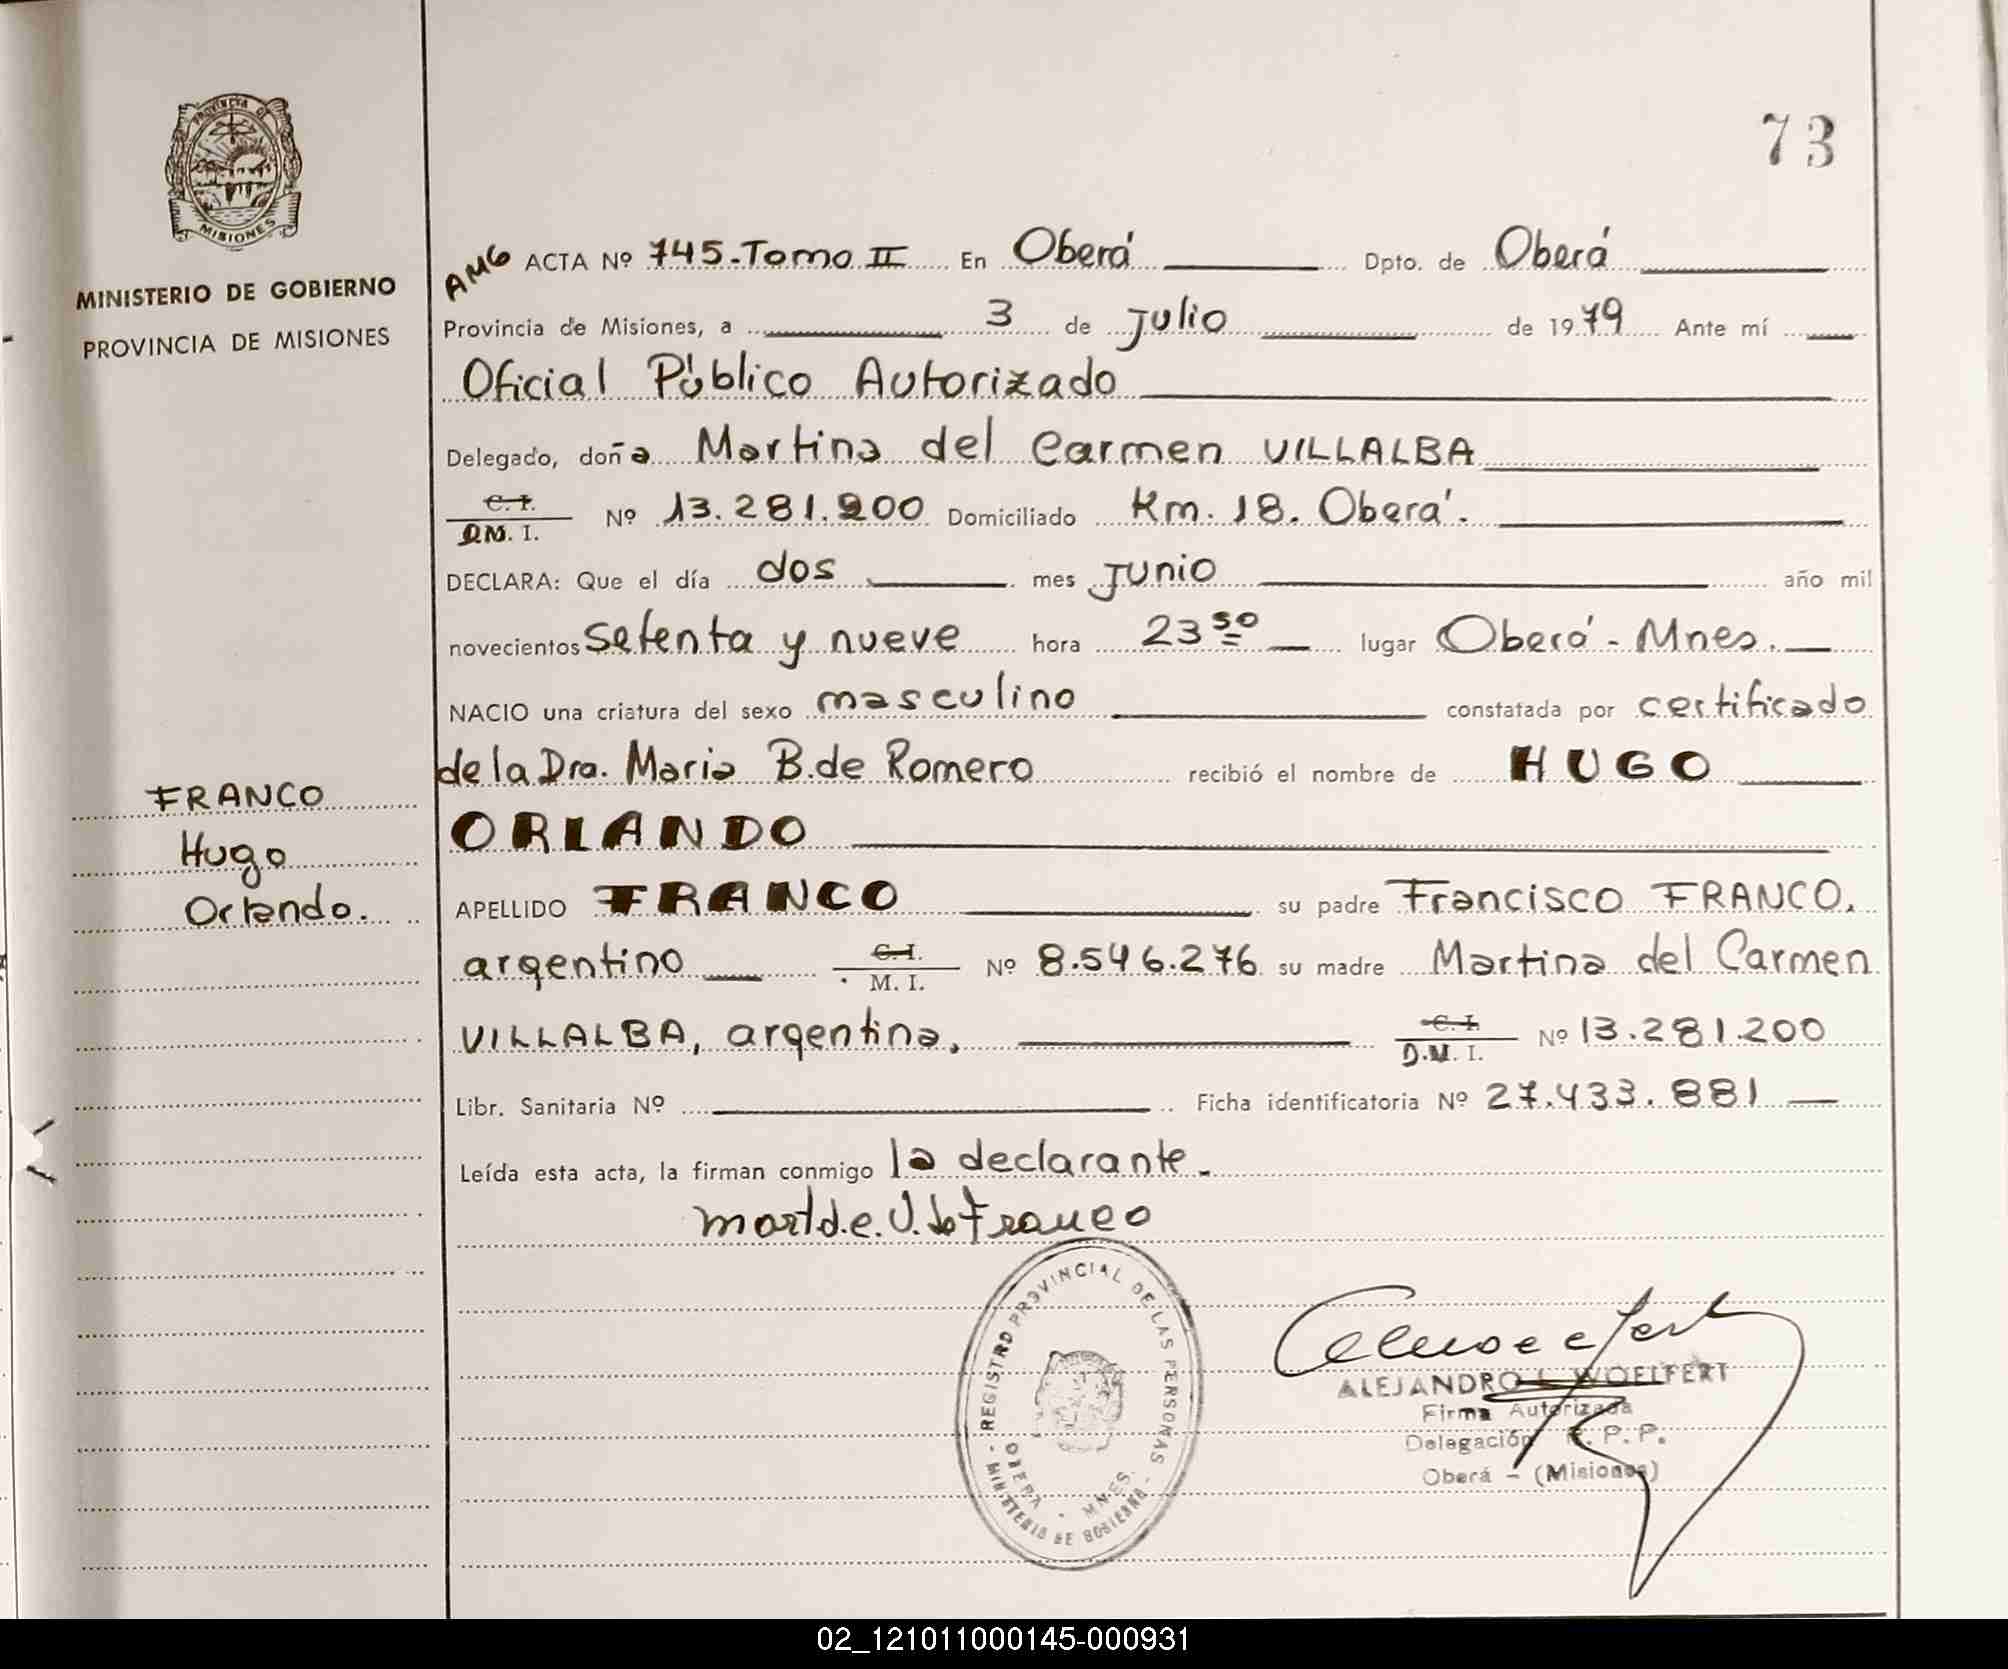 73
PROVINCIA DE
MISIONES
MINISTERIO DE GOBIERNO
PROVINCIA DE MISIONES
AMG ACTA Nº 745-Tomo II En Oberá Dpto. de Oberá
Provincia de Misiones, a 3 de Julio de 1979 Ante mí
Oficial Público Autorizado
Delegado, doña Martina del Carmen VILLALBA
C. I.
D.M. I. Nº 13.281.200 Domiciliado Km. 18. Oberá.
DECLARA: Que el día dos mes Junio año mil
novecientos Setenta y nueve hora 23 50 lugar Oberá - Mnes.
NACIO una criatura del sexo masculino constatada por certificado
de la Dra. Maria B. de Romero recibió el nombre de HUGO
ORLANDO
FRANCO
Hugo
Orlando.
APELLIDO FRANCO su padre Francisco FRANCO,
argentino C. I.
M. I. Nº 8.546.276 su madre Martina del Carmen
VILLALBA, argentina, C. I.
D.M. I. Nº 13.281.200
Libr. Sanitaria Nº Ficha identificatoria Nº 27.433.881
Leída esta acta, la firman conmigo la declarante.
V. de Franco
REGISTRO PROVINCIAL DE LAS PERSONAS - MINISTERIO DE GOBIERNO -
OBERA - MNES.
ALEJANDRO L. WOELFERT
Firma Autorizada
Delegación R. P. P.
Oberá - (Misiones)
02_121011000145-000931